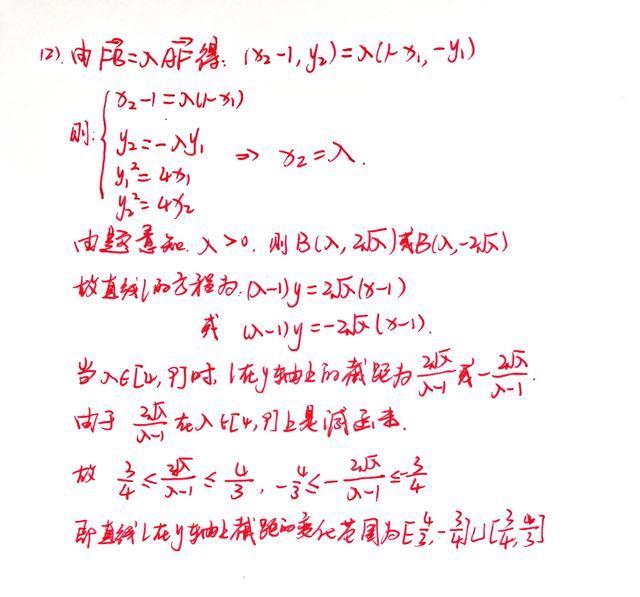 (2). 由 FB=λAF 得: (x₂-1, y₂)=λ(1-x₁, -y₁)
则: { x₂-1=λ(1-x₁)
y₂=-λy₁ ⇒ x₂=λ.
y₁²=4x₁
y₂²=4x₂
由题意知. λ>0. 则B(λ, 2√λ)或B(λ,-2√λ)
故直线l的方程为: (λ-1)y=2√λ(x-1)
或 (λ-1)y=-2√λ(x-1).
当λ∈[4, 9]时, l在y轴上的截距为 2√λ/(λ-1) 或 -2√λ/(λ-1).
由于 2√λ/(λ-1) 在λ∈[4,9]上是减函数.
故 3/4 ≤ 2√λ/(λ-1) ≤ 4/3, -4/3 ≤ -2√λ/(λ-1) ≤ -3/4
即直线l在y轴上截距的变化范围为[-4/3, -3/4]∪[3/4, 4/3]